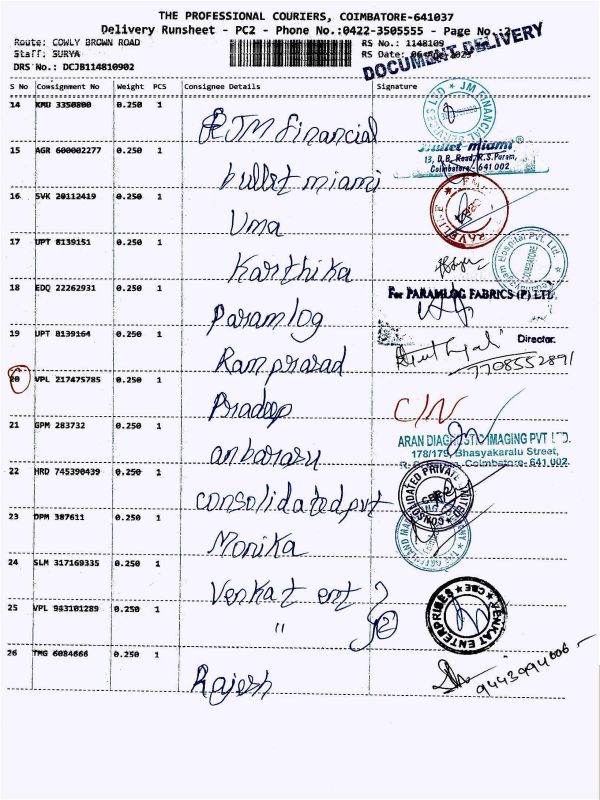 THE PROFESSIONAL COURIERS, COIMBATORE-641037
Delivery Runsheet - PC2 - Phone No.:0422-3505555 - Page No.:2
Route: COWLY BROWN ROAD RS No.: 1148109
Staff: SURYA RS Date:
DRS No.: DCJB114810902
DOCUMENT DELIVERY
S No Consignment No Weight PCS Consignee Details Signature
14 KMU 3350800 0.250 1 JM Financial
JM FINANCIAL SERVICES LTD
15 AGR 600002277 0.250 1 bullet miami
bullet miami®
13, D.B. Road, R.S.Puram,
Coimbatore - 641 002
16 SVK 20112419 0.250 1 Uma
17 UPT 8139151 0.250 1 Karthika
Hospital Pvt. Ltd.
COIMBATORE
18 EDQ 22262931 0.250 1 Paramlog
For PARAMLOG FABRICS (P) LTD.
Director.
19 UPT 8139164 0.250 1 Ramprasad
7708552891
20 VPL 217475785 0.250 1 Pradeep C/N
21 GPM 283732 0.250 1 anbarasu
ARAN DIAGNOSTIC IMAGING PVT LTD.
178/179, Bhasyakaralu Street,
Coimbatore- 641 002.
22 HRD 745390439 0.250 1 consolidated pvt
CONSOLIDATED PRIVATE LIMITED
23 DPM 387611 0.250 1 Monika
24 SLM 317169335 0.250 1 Venkat ent
25 VPL 943101289 0.250 1 " 2
VENKAT ENTERPRISES CBE
26 TMG 6084666 0.250 1 Rajesh
9443994606